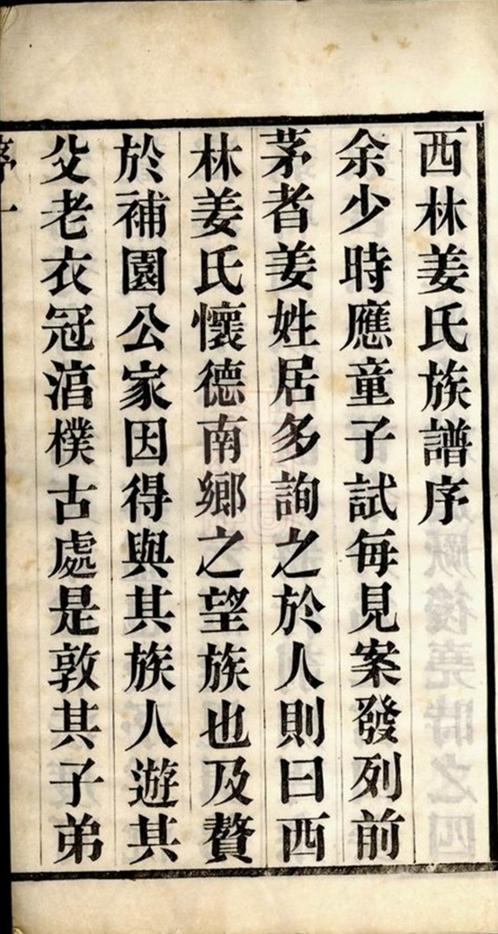 西林姜氏族譜序
余少時應童子試每見案發列前
茅者姜姓居多詢之於人則曰西
林姜氏懷德南鄉之望族也及贅
於補園公家因得與其族人遊其
父老衣冠湻樸古處是敦其子弟
序一